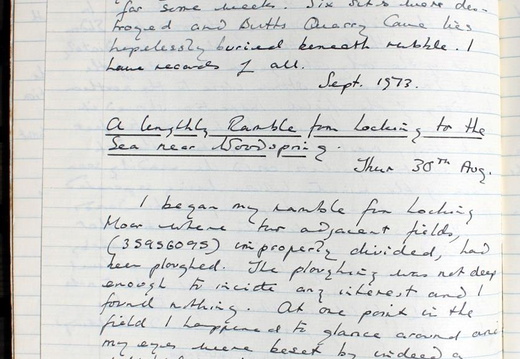 for some weeks. Six sites were des-
troyed and Butts Quarry Cave lies
hopelessly buried beneath rubble. I
have records of all.
Sept. 1973.
A lengthly Ramble from Locking to the
Sea near Woodspring.
Thur 30th Aug.
I began my ramble from Locking
Moor where two adjacent fields,
(35956095) improperly divided, had
been ploughed. The ploughing was not deep
enough to incite any interest and I
found nothing. At one point in the
field I happened to glance around and
my eyes were beset by indeed a